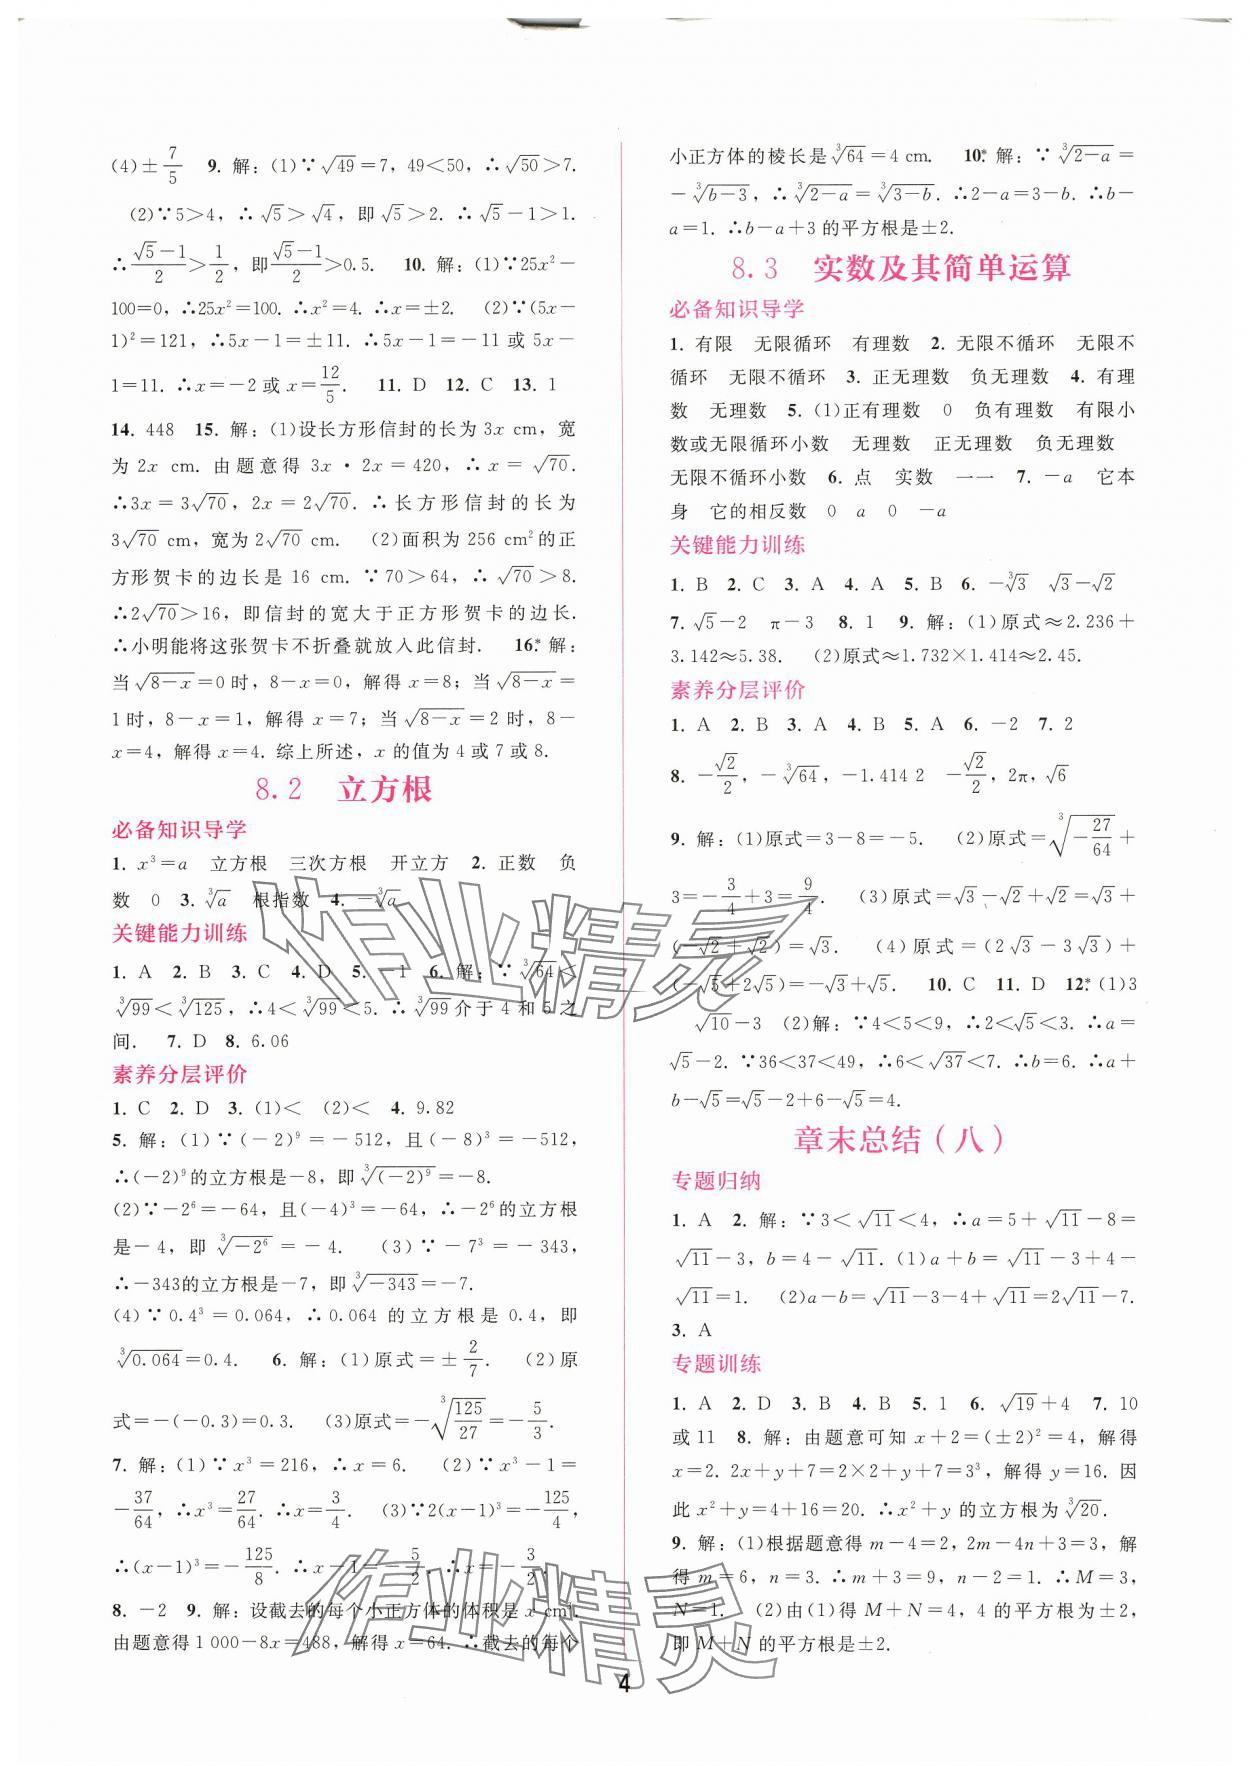 (4)±7/5　9. 解：(1)∵√49＝7，49＜50，∴√50＞7.
(2)∵5＞4，∴√5＞√4，即√5＞2. ∴√5－1＞1.
∴(√5－1)/2＞1/2，即(√5－1)/2＞0.5.　10. 解：(1)∵25x²－
100＝0，∴25x²＝100. ∴x²＝4. ∴x＝±2.　(2)∵(5x－
1)²＝121，∴5x－1＝±11. ∴5x－1＝－11 或 5x－
1＝11. ∴x＝－2或 x＝12/5.　11. D　12. C　13. 1
14. 448　15. 解：(1)设长方形信封的长为 3x cm，宽
为 2x cm. 由题意得 3x・2x＝420，∴x＝√70.
∴3x＝3√70，2x＝2√70. ∴长方形信封的长为
3√70 cm，宽为 2√70 cm.　(2)面积为 256 cm²的正
方形贺卡的边长是 16 cm. ∵70＞64，∴√70＞8.
∴2√70＞16，即信封的宽大于正方形贺卡的边长.
∴小明能将这张贺卡不折叠就放入此信封.　16*. 解：
当√(8－x)＝0 时，8－x＝0，解得 x＝8；当√(8－x)＝
1时，8－x＝1，解得 x＝7；当√(8－x)＝2 时，8－
x＝4，解得 x＝4. 综上所述，x 的值为 4 或 7 或 8.
8.2　立方根
必备知识导学
1. x³＝a　立方根　三次方根　开立方　2. 正数　负
数　0　3. ³√a　根指数　4. －³√a
关键能力训练
1. A　2. B　3. C　4. D　5. －1　6. 解：∵³√64＜
³√99＜³√125，∴4＜³√99＜5. ∴³√99介于 4 和 5 之
间.　7. D　8. 6.06
素养分层评价
1. C　2. D　3. (1)＜　(2)＜　4. 9.82
5. 解：(1)∵(－2)⁹＝－512，且(－8)³＝－512，
∴(－2)⁹的立方根是－8，即³√(－2)⁹＝－8.
(2)∵－2⁶＝－64，且(－4)³＝－64，∴－2⁶的立方根
是－4，即³√(－2⁶)＝－4.　(3)∵－7³＝－343，
∴－343的立方根是－7，即³√(－343)＝－7.
(4)∵0.4³＝0.064，∴0.064 的立方根是 0.4，即
³√0.064＝0.4.　6. 解：(1)原式＝±2/7.　(2)原
式＝－(－0.3)＝0.3.　(3)原式＝－³√(125/27)＝－5/3.
7. 解：(1)∵x³＝216，∴x＝6.　(2)∵x³－1＝
－37/64，∴x³＝27/64. ∴x＝3/4.　(3)∵2(x－1)³＝－125/4，
∴(x－1)³＝－125/8. ∴x－1＝－5/2. ∴x＝－3/2.
8. －2　9. 解：设截去的每个小正方体的体积是 x cm³.
由题意得1 000－8x＝488，解得 x＝64. ∴截去的每个
小正方体的棱长是³√64＝4 cm.　10*. 解：∵³√(2－a)＝
－³√(b－3)，∴³√(2－a)＝³√(3－b). ∴2－a＝3－b. ∴b－
a＝1. ∴b－a＋3 的平方根是±2.
8.3　实数及其简单运算
必备知识导学
1. 有限　无限循环　有理数　2. 无限不循环　无限不
循环　无限不循环　3. 正无理数　负无理数　4. 有理
数　无理数　5. (1)正有理数　0　负有理数　有限小
数或无限循环小数　无理数　正无理数　负无理数
无限不循环小数　6. 点　实数　一一　7. －a　它本
身　它的相反数　0　a　0　－a
关键能力训练
1. B　2. C　3. A　4. A　5. B　6. －³√3　√3－√2
7. √5－2　π－3　8. 1　9. 解：(1)原式≈2.236＋
3.142≈5.38.　(2)原式≈1.732×1.414≈2.45.
素养分层评价
1. A　2. B　3. A　4. B　5. A　6. －2　7. 2
8. －√2/2，－³√64，－1.414 2　－√2/2，2π，√6
9. 解：(1)原式＝3－8＝－5.　(2)原式＝³√(－27/64)＋
3＝－3/4＋3＝9/4.　(3)原式＝√3－√2＋√2＝√3＋
(－√2＋√2)＝√3.　(4)原式＝(2√3－3√3)＋
(－√5＋2√5)＝－√3＋√5.　10. C　11. D　12*. (1)3
√10－3　(2)解：∵4＜5＜9，∴2＜√5＜3. ∴a＝
√5－2. ∵36＜37＜49，∴6＜√37＜7. ∴b＝6. ∴a＋
b－√5＝√5－2＋6－√5＝4.
章末总结（八）
专题归纳
1. A　2. 解：∵3＜√11＜4，∴a＝5＋√11－8＝
√11－3，b＝4－√11. (1)a＋b＝√11－3＋4－
√11＝1.　(2)a－b＝√11－3－4＋√11＝2√11－7.
3. A
专题训练
1. A　2. D　3. B　4. B　5. 1　6. √19＋4　7. 10
或11　8. 解：由题意可知 x＋2＝(±2)²＝4，解得
x＝2. 2x＋y＋7＝2×2＋y＋7＝3³，解得 y＝16. 因
此 x²＋y＝4＋16＝20. ∴x²＋y 的立方根为³√20.
9. 解：(1)根据题意得 m－4＝2，2m－4n＋3＝3，解
得 m＝6，n＝3. ∴m＋3＝9，n－2＝1. ∴M＝3，
N＝1.　(2)由(1)得 M＋N＝4，4 的平方根为±2，
即 M＋N 的平方根是±2.
4
作业精灵
作业精灵